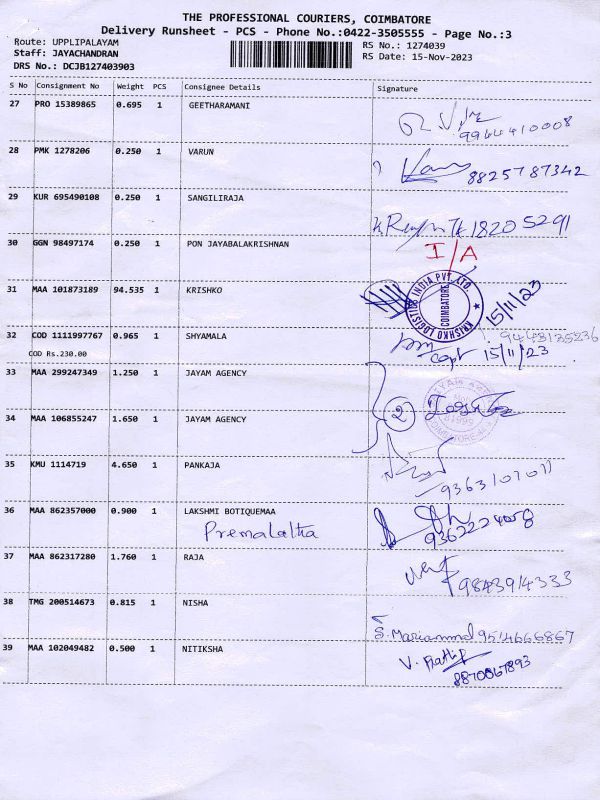 THE PROFESSIONAL COURIERS, COIMBATORE
Delivery Runsheet - PCS - Phone No.:0422-3505555 - Page No.:3
Route: UPPLIPALAYAM
Staff: JAYACHANDRAN
DRS No.: DCJB127403903
RS No.: 1274039
RS Date: 15-Nov-2023
S No Consignment No Weight PCS Consignee Details Signature
27 PRO 15389865 0.695 1 GEETHARAMANI
9944410008
28 PMK 1278206 0.250 1 VARUN
8825787342
29 KUR 695490108 0.250 1 SANGILIRAJA
18205291
30 GGN 98497174 0.250 1 PON JAYABALAKRISHNAN
I/A
31 MAA 101873189 94.535 1 KRISHKO
KRISHKO LOGISTICS INDIA PVT. LTD.
COIMBATORE
15/11/23
32 COD 1111997767 0.965 1 SHYAMALA
COD Rs.230.00
9443135236
15/11/23
33 MAA 299247349 1.250 1 JAYAM AGENCY
2
34 MAA 106855247 1.650 1 JAYAM AGENCY
35 KMU 1114719 4.650 1 PANKAJA
36 MAA 862357000 0.900 1 LAKSHMI BOTIQUEMAA
Premalatha
9362224008
37 MAA 862317280 1.760 1 RAJA
9843914333
38 TMG 200514673 0.815 1 NISHA
S. Mariammal 9514666867
39 MAA 102049482 0.500 1 NITIKSHA
V.
8870067893